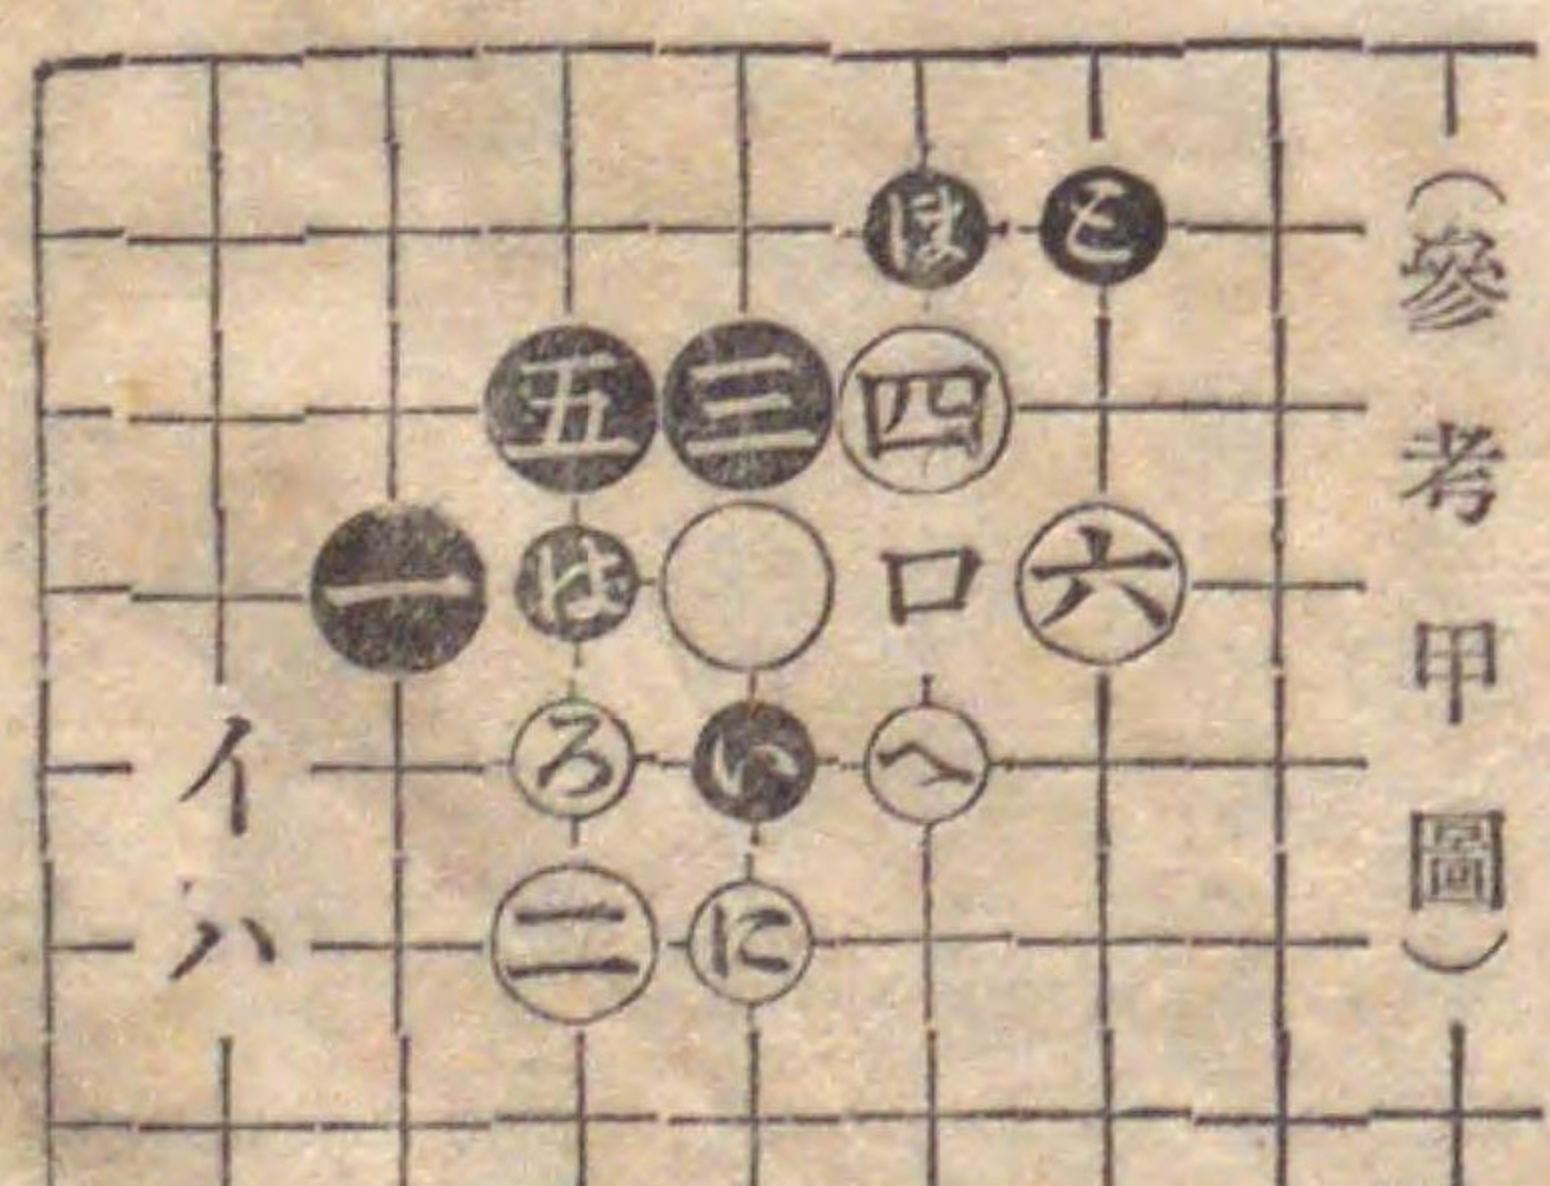 (參考甲圖)
ほ と
五 三 四
一 は ロ 六
イ ろ い へ
ハ 二 に